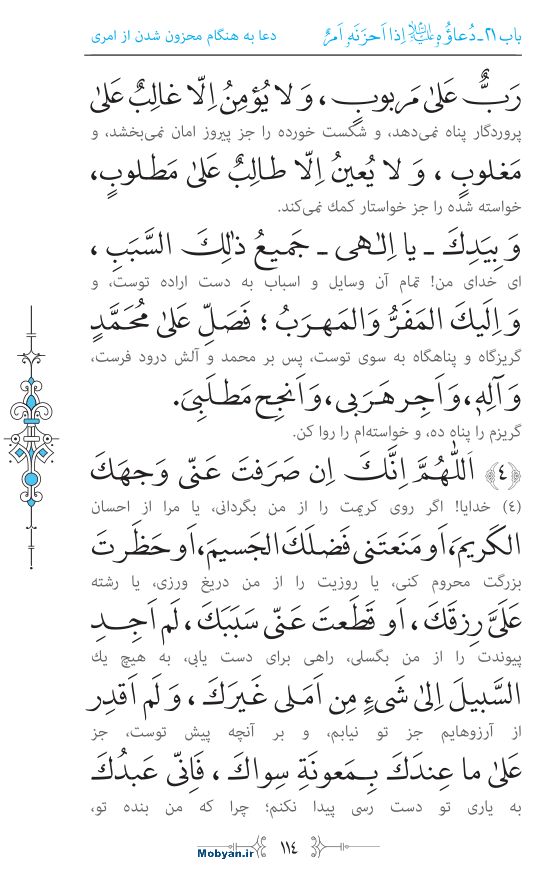 باب ۲۱ـ دُعاؤُهُ علیه‌السلام اِذا اَحزَنَهُ اَمرٌ
دعا به هنگام محزون شدن از امری
رَبٌّ عَلیٰ مَربوبٍ ، وَ لا یُؤمِنُ اِلّا غالِبٌ عَلیٰ
پروردگار پناه نمی‌دهد، و شکست خورده را جز پیروز امان نمی‌بخشد، و
مَغلوبٍ ، وَ لا یُعینُ اِلّا طالِبٌ عَلیٰ مَطلوبٍ،
خواسته شده را جز خواستار کمک نمی‌کند.
وَ بِیَدِكَ ـ یا اِلٰهی ـ جَمیعُ ذٰلِكَ السَّبَبِ ،
ای خدای من! تمام آن وسایل و اسباب به دست اراده توست، و
وَ اِلَیكَ المَفَرُّ وَالمَهرَبُ ؛ فَصَلِّ عَلیٰ مُحَمَّدٍ
گریزگاه و پناهگاه به سوی توست، پس بر محمد و آلش درود فرست،
وَ آلِهِ، وَ اَجِر هَرَبی ، وَ اَنجِح مَطلَبی.
گریزم را پناه ده، و خواسته‌ام را روا کن.
﴿٤﴾ اَللّٰهُمَّ اِنَّكَ اِن صَرَفتَ عَنّی وَجهَكَ
(٤) خدایا! اگر روی کریمت را از من بگردانی، یا مرا از احسان
الكَریمَ، اَو مَنَعتَنی فَضلَكَ الجَسیمَ، اَو حَظَرتَ
بزرگت محروم کنی، یا روزیت را از من دریغ ورزی، یا رشته
عَلَیَّ رِزقَكَ ، اَو قَطَعتَ عَنّی سَبَبَكَ ، لَم اَجِدِ
پیوندت را از من بگسلی، راهی برای دست یابی، به هیچ یك
السَّبیلَ اِلیٰ شَیءٍ مِن اَمَلی غَیرَكَ ، وَ لَم اَقدِر
از آرزوهایم جز تو نیابم، و بر آنچه پیش توست، جز
عَلیٰ ما عِندَكَ بِمَعونَةِ سِواكَ ، فَاِنّی عَبدُكَ
به یاری تو دست رسی پیدا نکنم؛ چرا که من بنده تو،
١١٤
Mobyan.ir